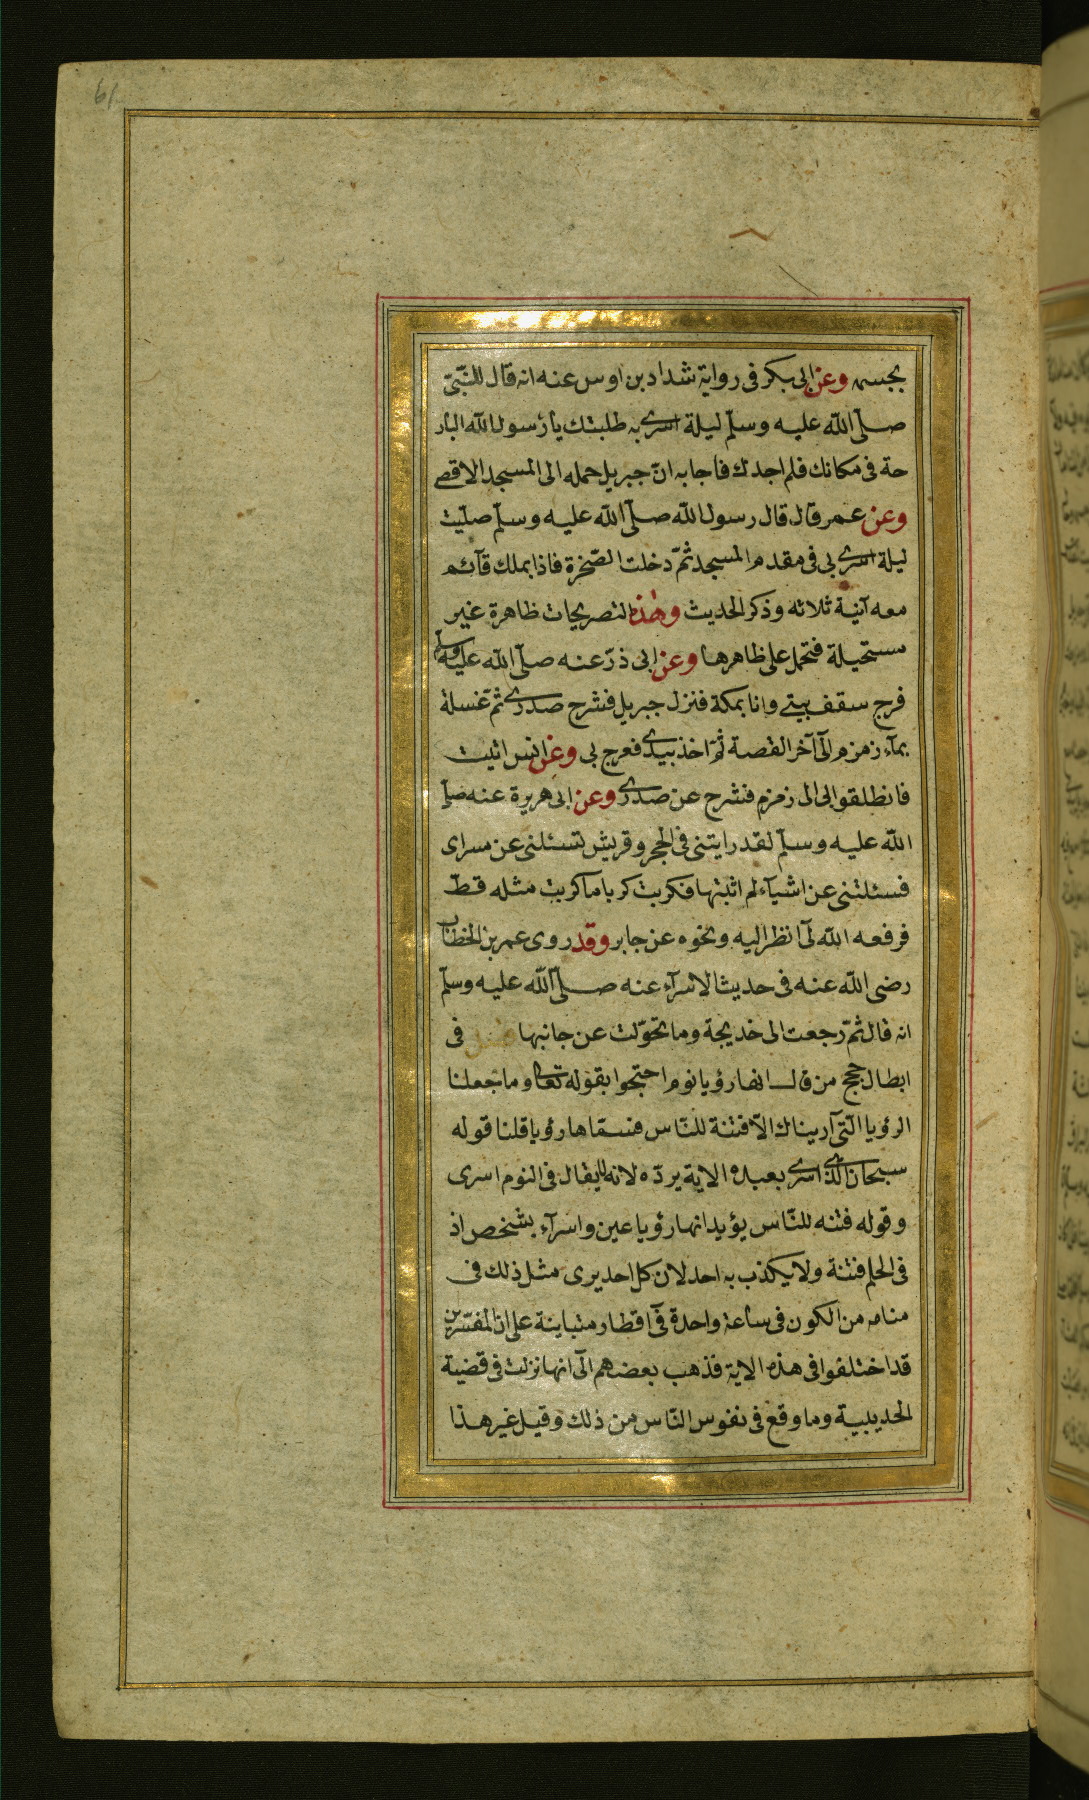 61
بجسمه وعن ابى بكر فى رواية شداد بن اوس عنه انه قال للنّبىّ
صلّى اللّه عليه وسلّم ليلة اسرى به طلبتك يا رسول اللّه البار
حة فى مكانك فلم اجدك فاجابه انّ جبريل حمله الى المسجد الاقصى
وعن عمر قال قال رسول اللّه صلّى اللّه عليه وسلّم صلّيت
ليلة اسرى بى فى مقدم المسجد ثمّ دخلت الصّخرة فاذا بملك قآئم
معه آنية ثلاثه وذكر الحديث وهذه التصريحات ظاهرة غير
مستحيلة فتحمل على ظاهرها وعن ابى ذرّ عنه صلّى اللّه عليه وسلّم
فرج سقف بيتى وانا بمكة فنزل جبريل فشرح صدرى ثمّ غسله
بمآء زمزم الى آخر القصة ثمّ اخذ بيدى فعرج بى وعن انس اتيت
فانطلقوا بى الى زمزم فشرح عن صدرى وعن ابى هريرة عنه صلّى
اللّه عليه وسلّم لقد رايتنى فى الحجر وقريش تسئلنى عن مسراى
فسئلتنى عن اشيآء لم اثبتها فكربت كربا ما كربت مثله قطّ
فرفعه اللّه لى آنظر اليه ونحوه عن جابر وقد روى عمر بن الخطاب
رضى اللّه عنه فى حديث الاسرآء عنه صلّى اللّه عليه وسلّم
انه قال ثمّ رجعت الى خديجة وما تحوّلت عن جانبها فصل فى
ابطال حجج من قال انها رؤيا نوم احتجوا بقوله تعالى وما جعلنا
الرؤيا الّتى آريناك الّا فتنة للنّاس فسمّاها رؤيا قلنا قوله
سبحان الّذى اسرى بعبده الاية يردّه لانه لا يقال فى النوم اسرى
وقوله فتنه للنّاس يؤيد انها رؤيا عين واسرآء بشخص اذ
فى الحلم فتنة ولا يكذب به احد لان كل احد يرى مثل ذلك فى
منامه من الكون فى ساعة واحدة فى آقطار متباينة على ان المفسّرين
قد اختلفوا فى هذه الاية فذهب بعضهم الى انها نزلت فى قضية
الحديبية وما وقع فى نفوس النّاس من ذلك وقيل غير هذا